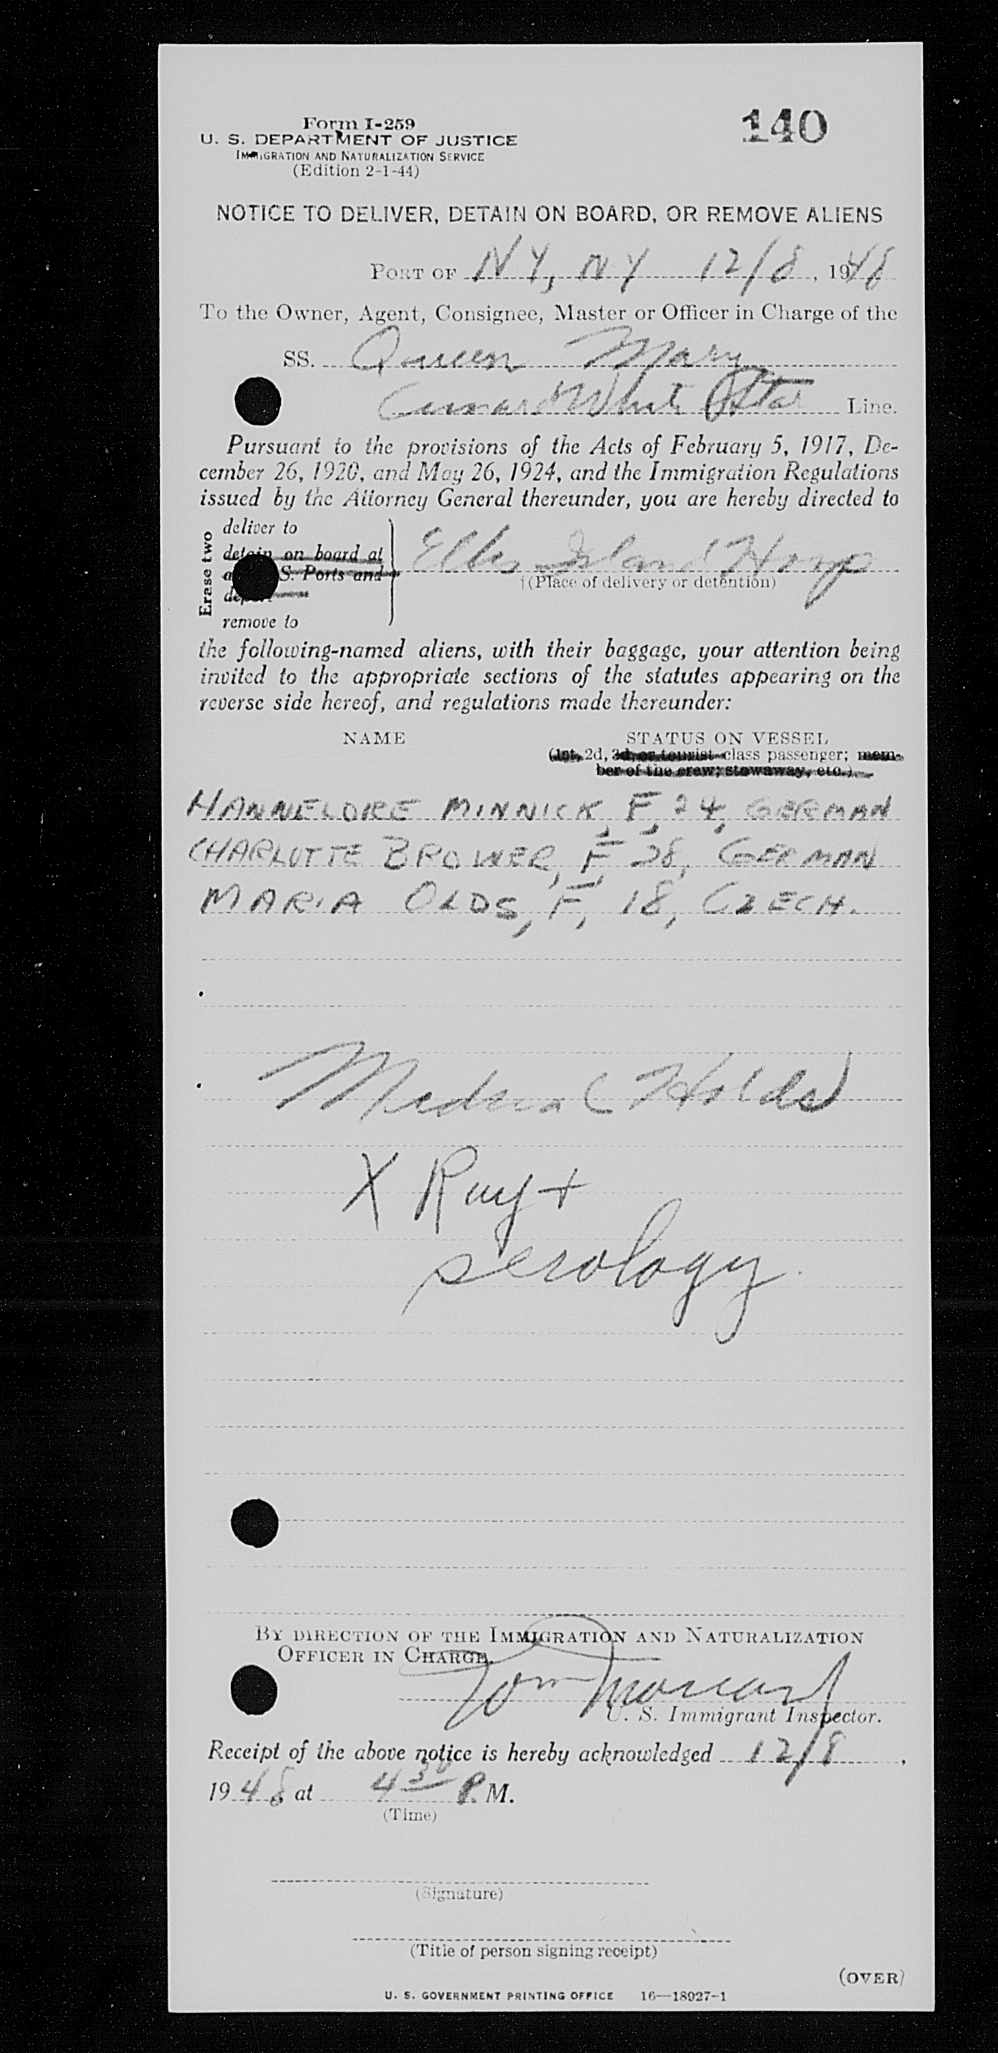 Form I-259
140
U. S. DEPARTMENT OF JUSTICE
IMMIGRATION AND NATURALIZATION SERVICE
(Edition 2-1-44)
NOTICE TO DELIVER, DETAIN ON BOARD, OR REMOVE ALIENS
PORT OF NY, NY 12/8, 1948
To the Owner, Agent, Consignee, Master or Officer in Charge of the
SS. Queen Mary
Cunard White Star Line.
Pursuant to the provisions of the Acts of February 5, 1917, De-
cember 26, 1920, and May 26, 1924, and the Immigration Regulations
issued by the Attorney General thereunder, you are hereby directed to
Erase two
deliver to
detain on board at
S. Ports and
remove to
Ellis Island Hosp
(Place of delivery or detention)
the following-named aliens, with their baggage, your attention being
invited to the appropriate sections of the statutes appearing on the
reverse side hereof, and regulations made thereunder:
NAME STATUS ON VESSEL
(1st, 2d, 3d, or tourist class passenger; mem-
ber of the crew; stowaway, etc.)
HANNELORE MINNICK, F, 24, GERMAN
CHARLOTTE BROWER, F, 28, GERMAN
MARIA OLDS, F, 18, CZECH.
Medical Holds
X Ray +
serology
BY DIRECTION OF THE IMMIGRATION AND NATURALIZATION
OFFICER IN CHARGE.
U. S. Immigrant Inspector.
Receipt of the above notice is hereby acknowledged 12/8,
1948 at 4 30 P.M.
(Time)
(Signature)
(Title of person signing receipt)
(OVER)
U. S. GOVERNMENT PRINTING OFFICE 16—18927-1